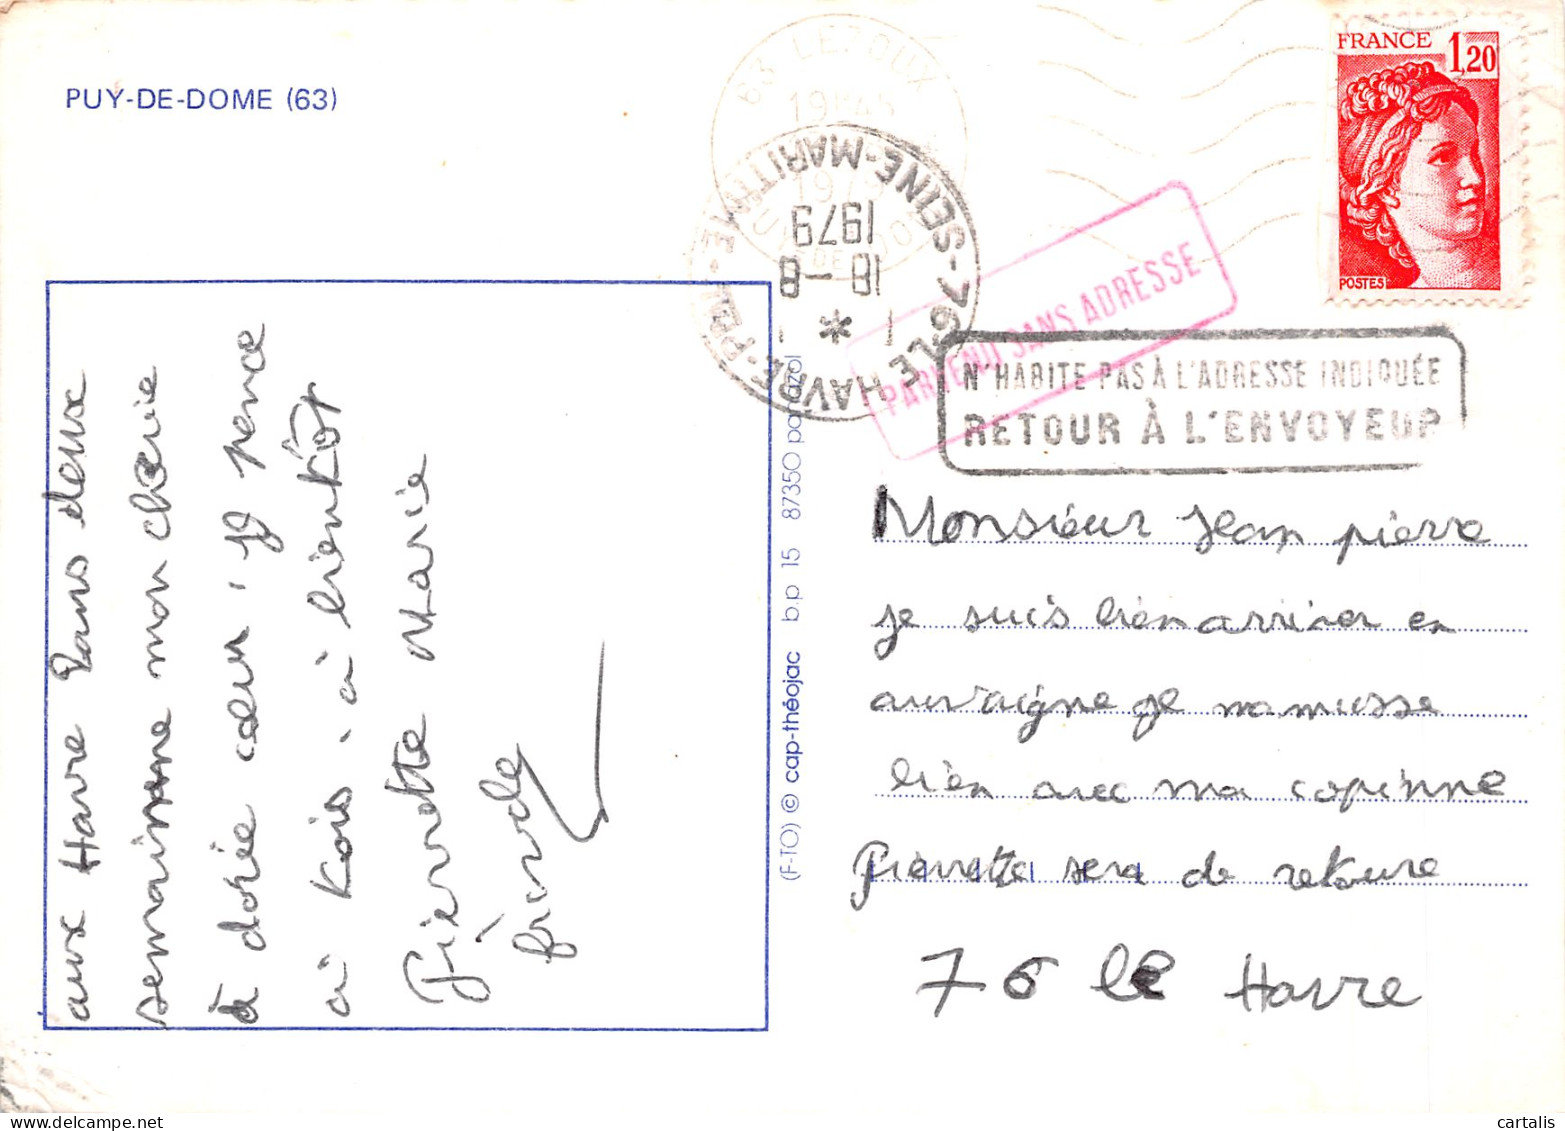 PUY-DE-DOME (63)
FRANCE 1,20
POSTES
63 LEZOUX
1979
76 LE HAVRE-
SEINE-MARITIME
18-8
1979
PARVENU SANS ADRESSE
N'HABITE PAS À L'ADRESSE INDIQUÉE
RETOUR À L'ENVOYEUR
Monsieur Jean pierre
je suis bien arriver en
auvraigne je mamusse
bien avec ma copinne
Pierrette sera de retoure
76 le Havre
aux Havre Dans deux
semainne mon cherie
à dorée coeur. je pence
a toi. à bientôt
Pierrette Marie
(F-TO) © cap-théojac b.p 15 87350 panazol
cartalis